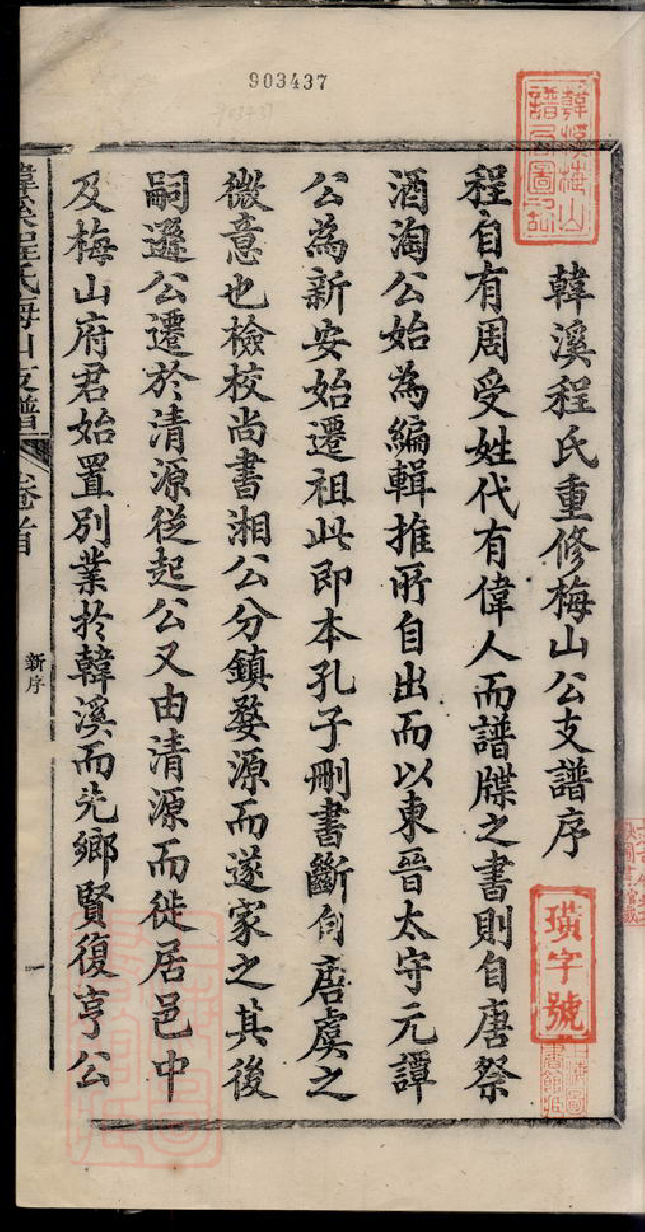 903437
韓溪程氏重修梅山公支譜序
程自有周受姓代有偉人而譜牒之書則自唐祭
酒淘公始為編輯推所自出而以東晉太守元譚
公為新安始遷祖此即本孔子刪書斷自唐虞之
微意也檢校尚書湘公分鎮婺源而遂家之其後
嗣遜公遷於清源從起公又由清源而徙居邑中
及梅山府君始置別業於韓溪而先鄉賢復亨公
韓溪程氏梅山支譜
卷首
新序
一
韓溪梅山譜局圖記
璜字號